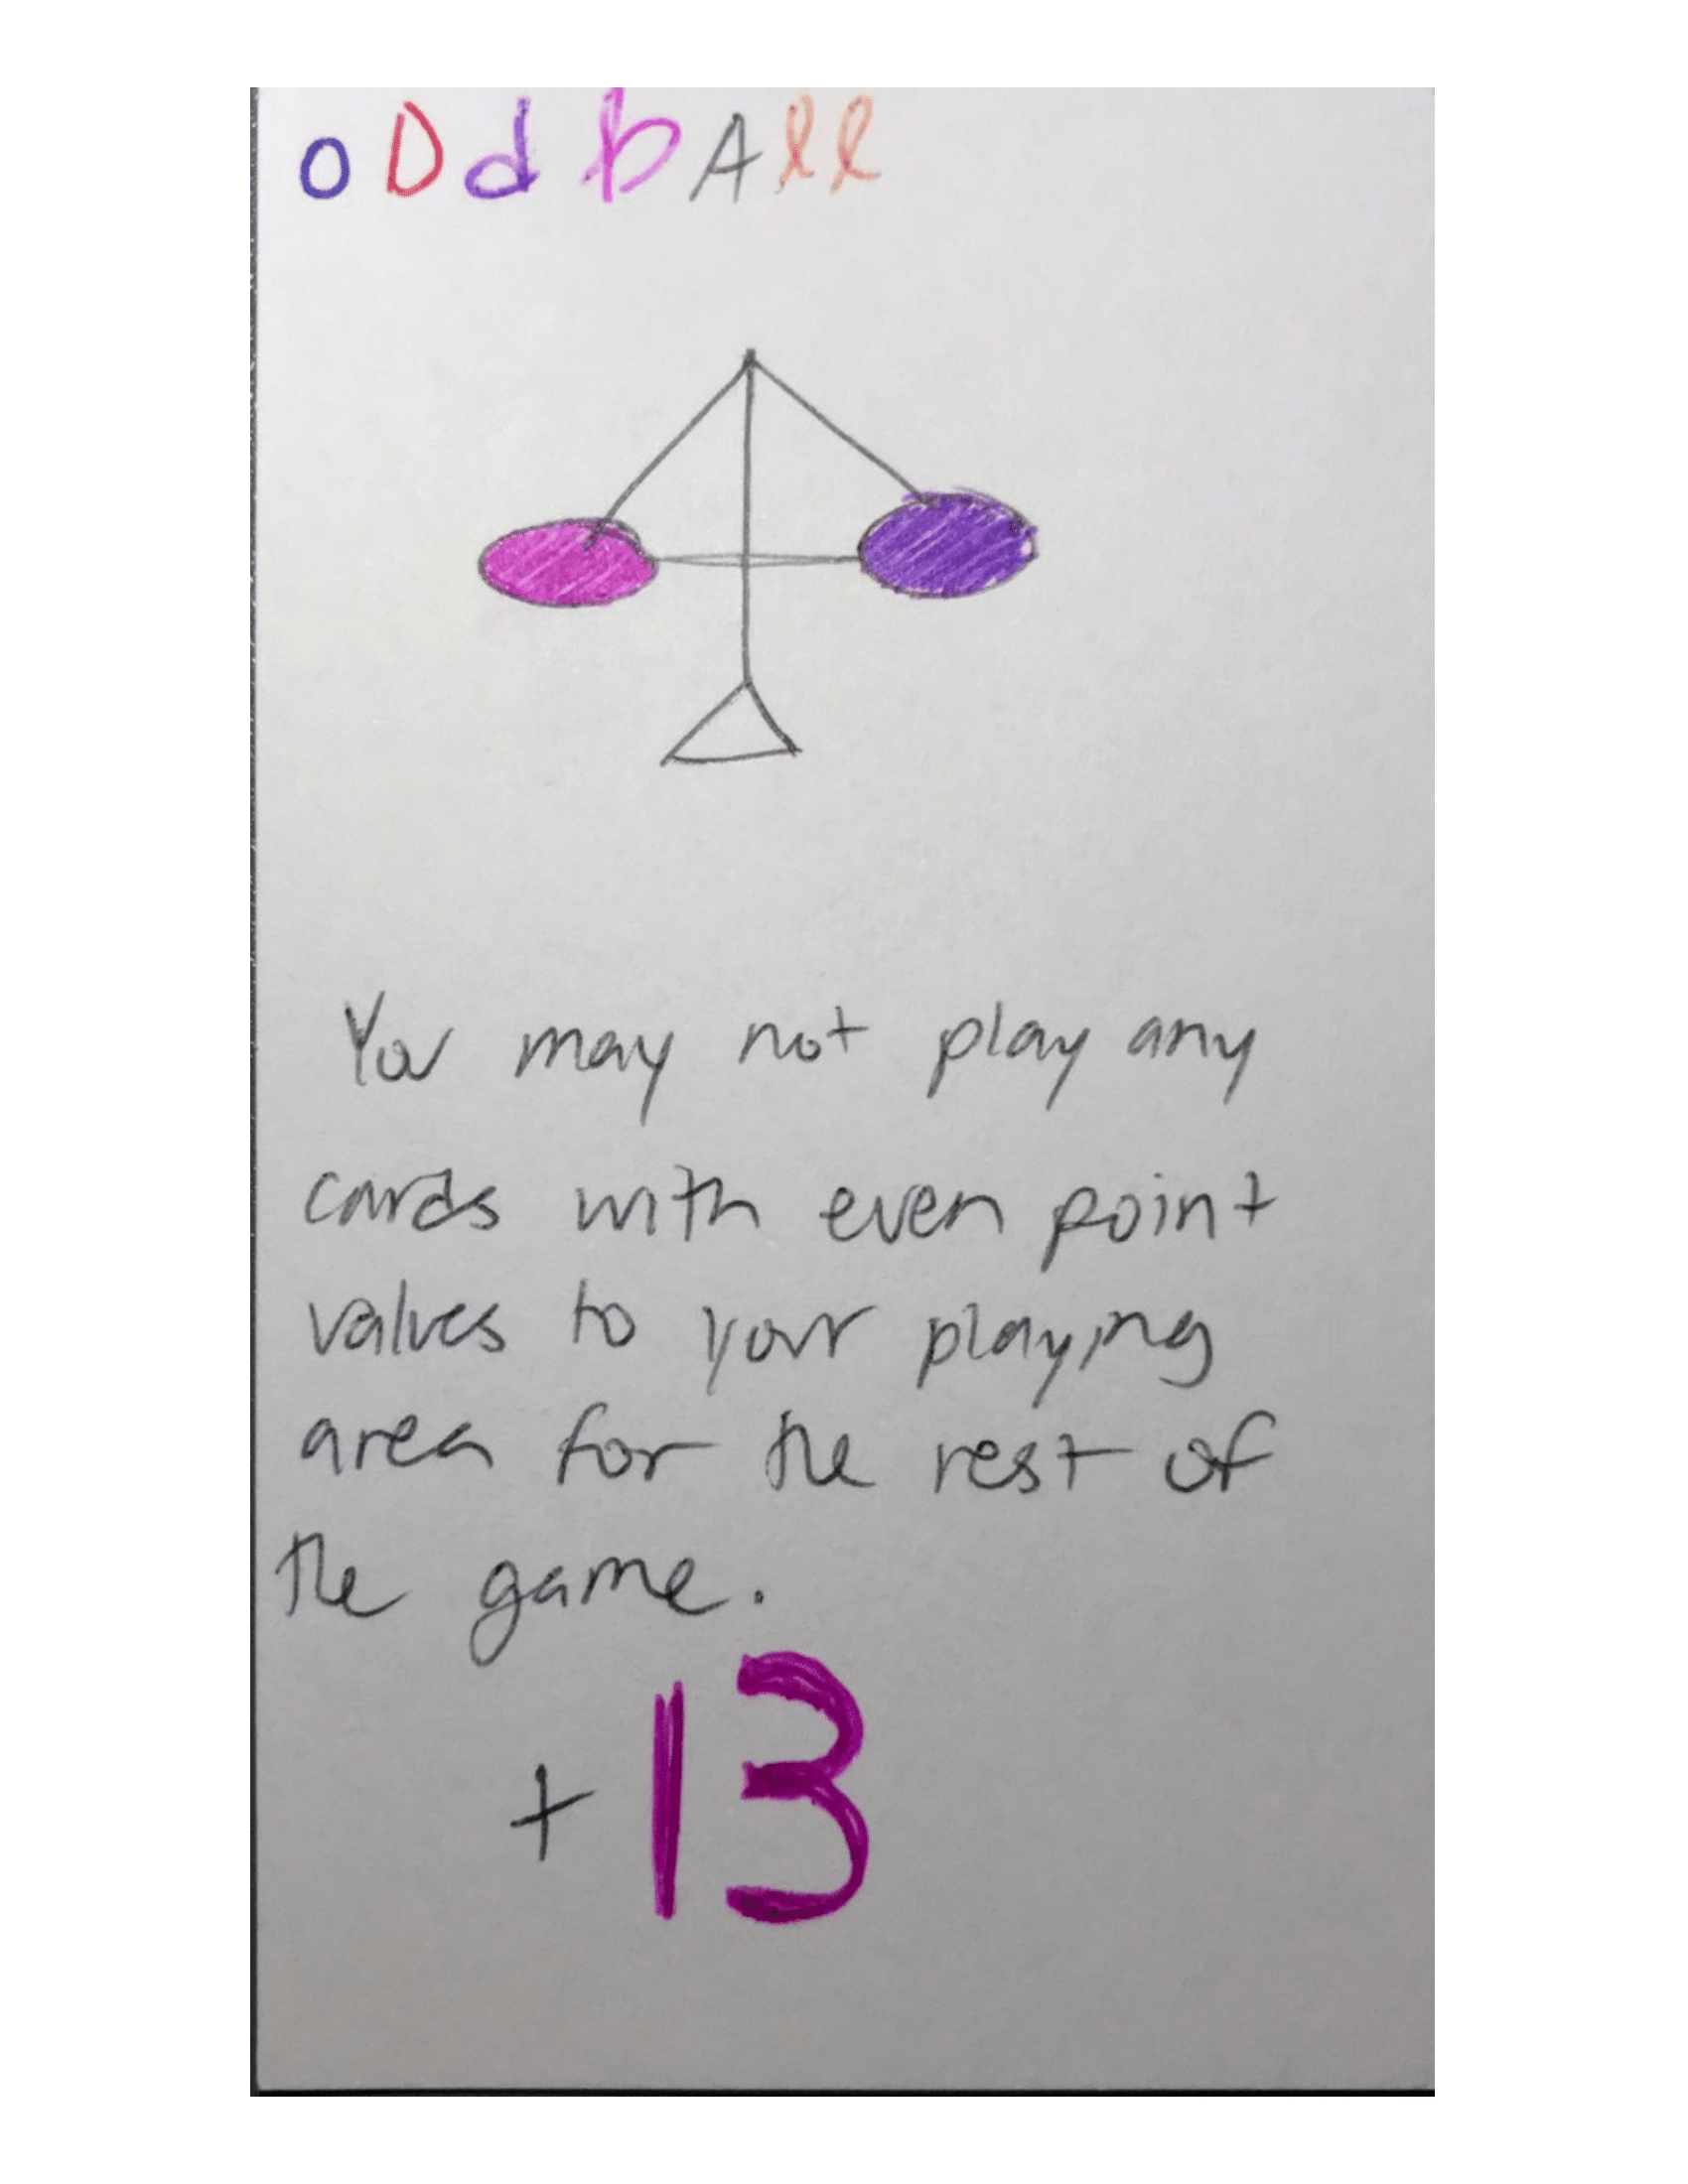 oDd bAll
You may not play any
cards with even point
values to your playing
area for the rest of
the game.
+13